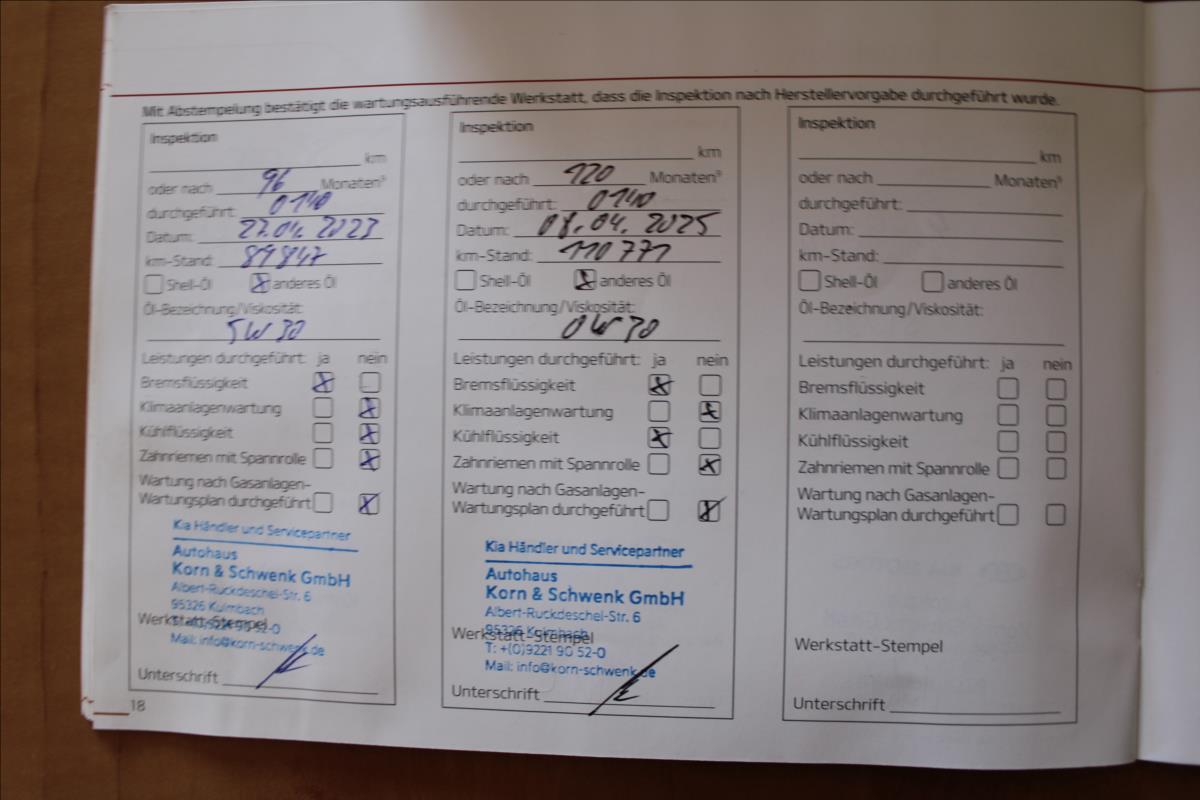 Mit Abstempelung bestätigt die wartungsausführende Werkstatt, dass die Inspektion nach Herstellervorgabe durchgeführt wurde.
Inspektion
km
oder nach 96 Monaten³
durchgeführt: 0140
Datum: 27.04.2023
km-Stand: 89847
Shell-Öl anderes Öl
Öl-Bezeichnung/Viskosität:
5W30
Leistungen durchgeführt: ja nein
Bremsflüssigkeit
Klimaanlagenwartung
Kühlflüssigkeit
Zahnriemen mit Spannrolle
Wartung nach Gasanlagen-
Wartungsplan durchgeführt
Kia Händler und Servicepartner
Autohaus
Korn & Schwenk GmbH
Albert-Ruckdeschel-Str. 6
95326 Kulmbach
Werkstatt-Stempel
Mail: info@korn-schwenk.de
Unterschrift
18
Inspektion
km
oder nach 120 Monaten³
durchgeführt: 0140
Datum: 08.04.2025
km-Stand: 110771
Shell-Öl anderes Öl
Öl-Bezeichnung/Viskosität:
0W30
Leistungen durchgeführt: ja nein
Bremsflüssigkeit
Klimaanlagenwartung
Kühlflüssigkeit
Zahnriemen mit Spannrolle
Wartung nach Gasanlagen-
Wartungsplan durchgeführt
Kia Händler und Servicepartner
Autohaus
Korn & Schwenk GmbH
Albert-Ruckdeschel-Str. 6
95326 Kulmbach
Werkstatt-Stempel
T: +(0)9221 90 52-0
Mail: info@korn-schwenk.de
Unterschrift
Inspektion
km
oder nach Monaten³
durchgeführt:
Datum:
km-Stand:
Shell-Öl anderes Öl
Öl-Bezeichnung/Viskosität:
Leistungen durchgeführt: ja nein
Bremsflüssigkeit
Klimaanlagenwartung
Kühlflüssigkeit
Zahnriemen mit Spannrolle
Wartung nach Gasanlagen-
Wartungsplan durchgeführt
Werkstatt-Stempel
Unterschrift